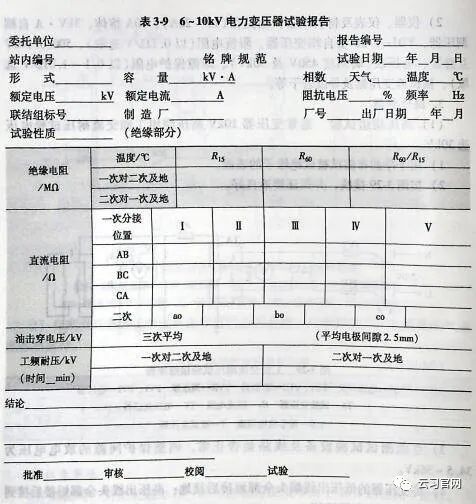 表 3-9 6~10kV 电力变压器试验报告
委托单位 报告编号
站内编号 铭 牌 规 范 试验日期 年 月 日
形 式 容 量 kV·A 相数 天气 温度 ℃
额定电压 kV 额定电流 A 阻抗电压 % 频率 Hz
联结组标号 制 造 厂 厂号 出厂日期 年 月
试验性质 (绝缘部分)
绝缘电阻 /MΩ 温度/℃ R15 R60 R60/R15
一次对二次及地
二次对一次及地
直流电阻 /Ω 一次分接位置 Ⅰ Ⅱ Ⅲ Ⅳ Ⅴ
AB
BC
CA
二次 ao bo co
油击穿电压/kV 三次平均 (平均电极间隙2.5mm)
工频耐压/kV 一次对二次及地 二次对一次及地
(时间 min)
结论
批准 审核 校阅 试验
云习官网